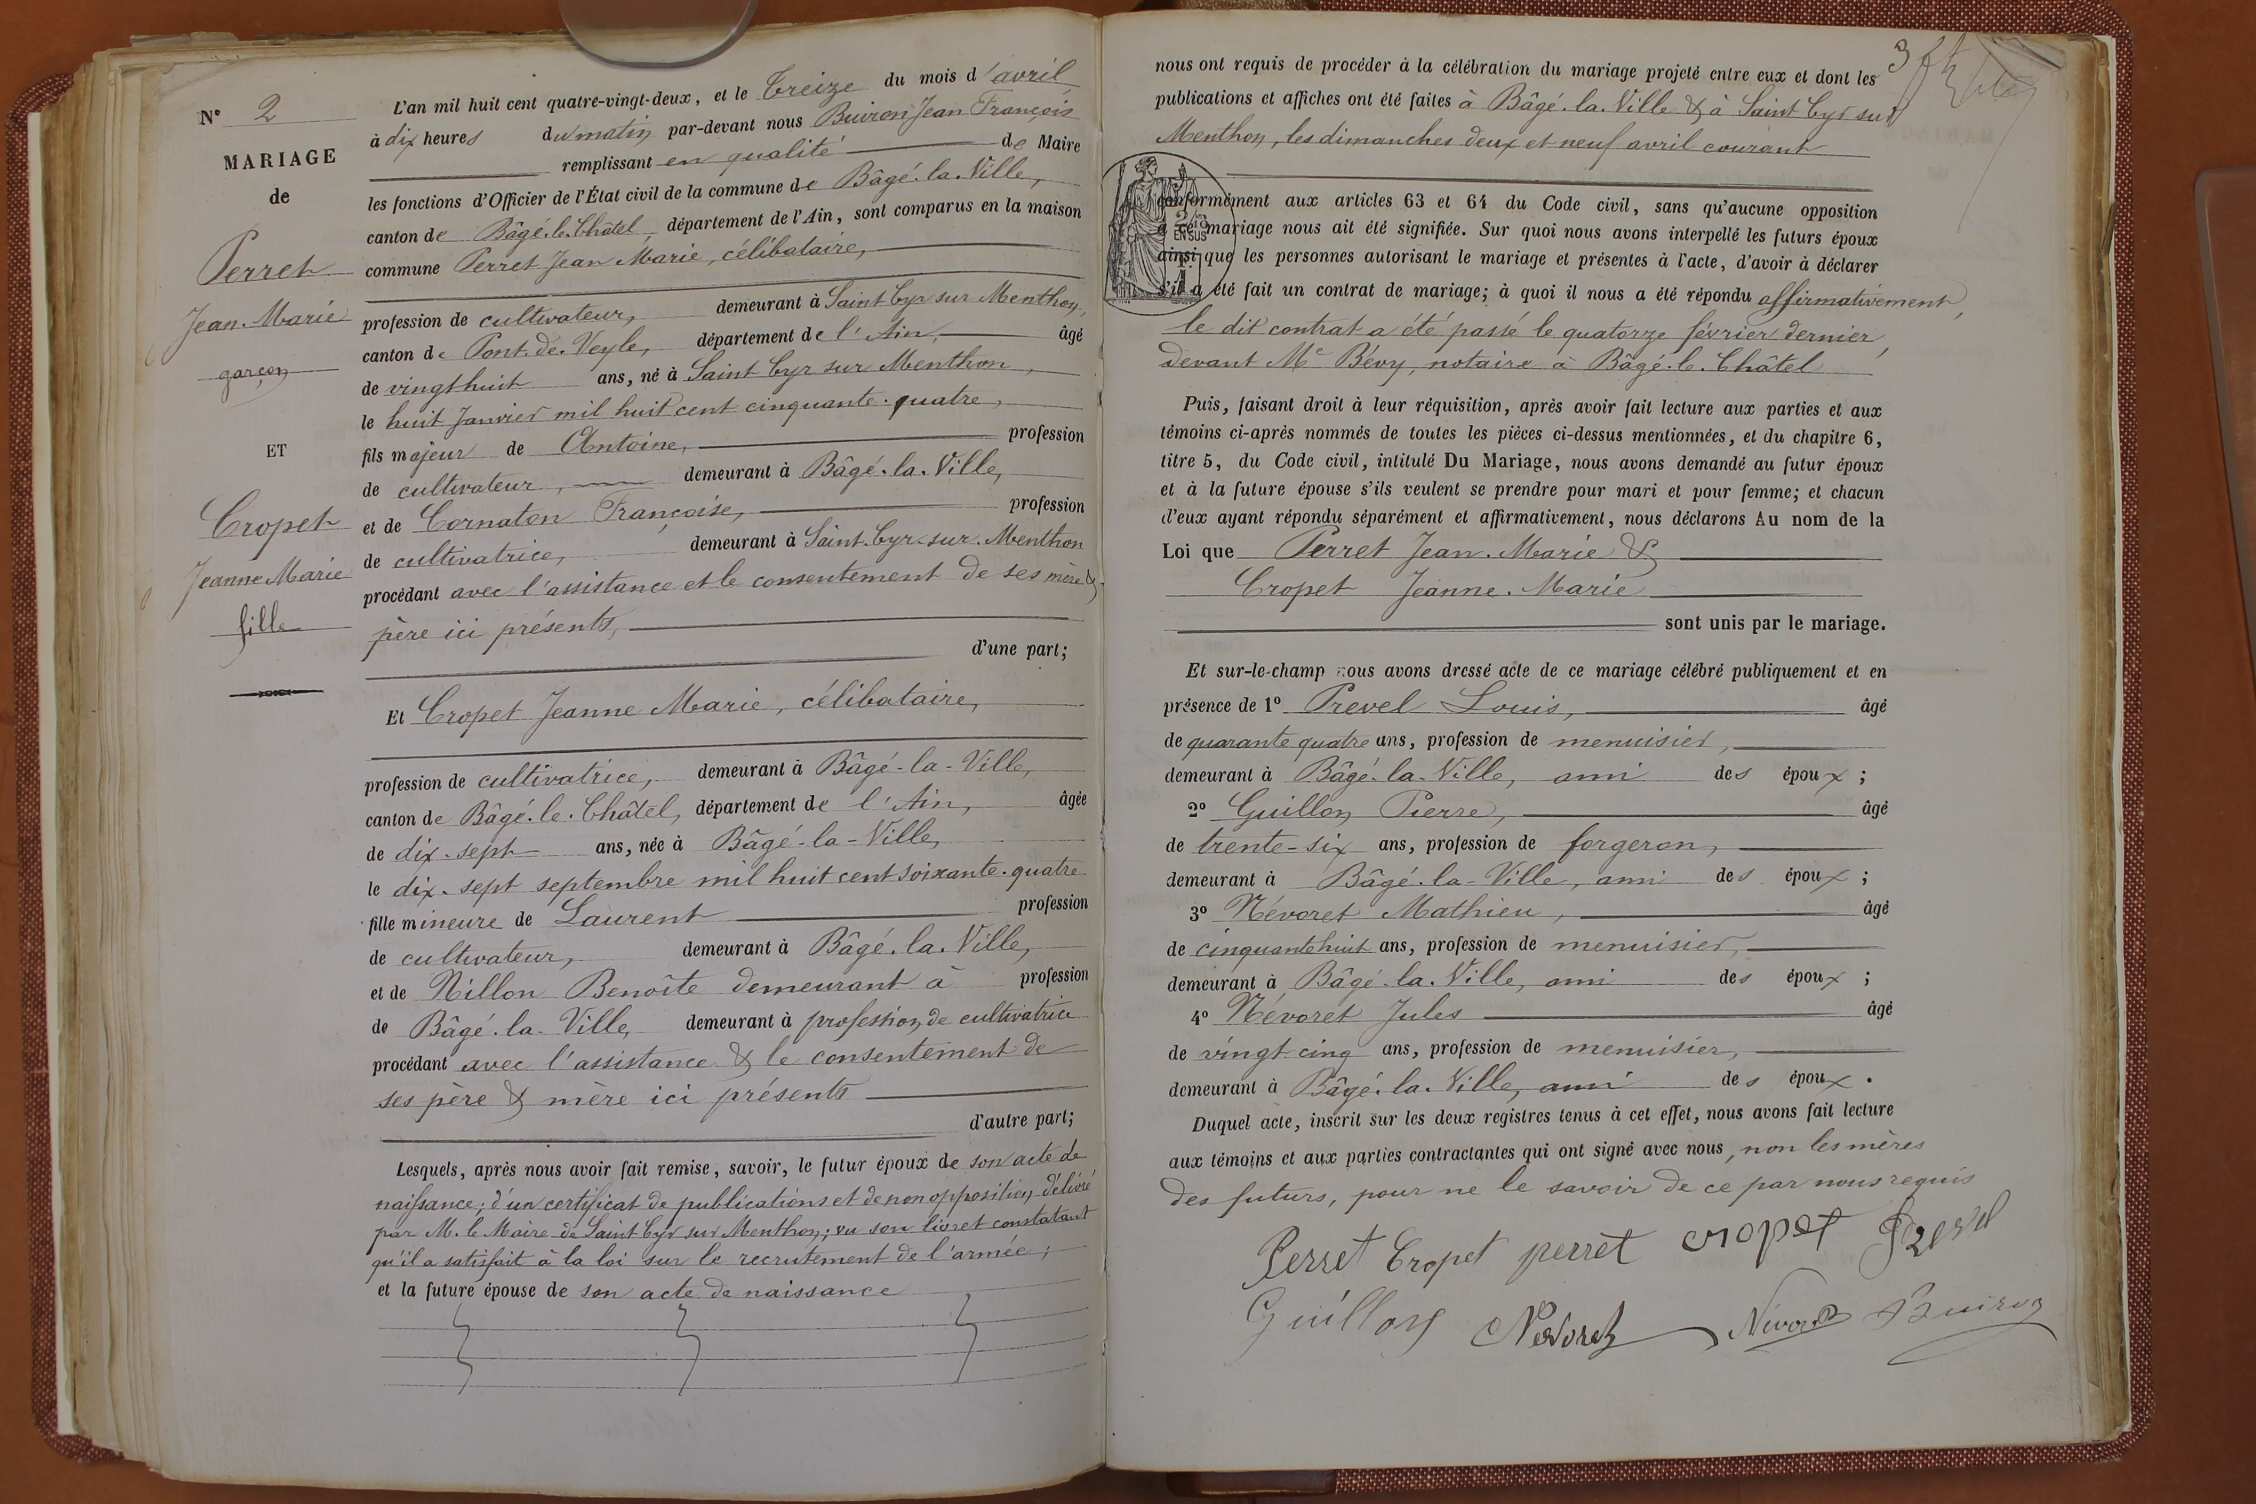 N° 2
MARIAGE
de
Perret
Jean-Marie
garçon
ET
Cropet
Jeanne Marie
fille
L'an mil huit cent quatre-vingt-deux, et le Treize du mois d'avril
à dix heures du matin par-devant nous Buiron Jean François
remplissant en qualité de Maire
les fonctions d'Officier de l'État civil de la commune de Bâgé-la-Ville,
canton de Bâgé-le-Châtel, département de l'Ain, sont comparus en la maison
commune Perret Jean Marie, célibataire,
profession de cultivateur, demeurant à Saint Cyr sur Menthon,
canton de Pont-de-Veyle, département de l'Ain, âgé
de vingt huit ans, né à Saint Cyr sur Menthon,
le huit Janvier mil huit cent cinquante-quatre,
fils majeur de Antoine, profession
de cultivateur, demeurant à Bâgé-la-Ville,
et de Cornaton Françoise, profession
de cultivatrice, demeurant à Saint-Cyr-sur-Menthon
procédant avec l'assistance et le consentement de ses mère &
père ici présents,
d'une part;
Et Cropet Jeanne Marie, célibataire,
profession de cultivatrice, demeurant à Bâgé-la-Ville,
canton de Bâgé-le-Châtel, département de l'Ain, âgée
de dix-sept ans, née à Bâgé-la-Ville,
le dix-sept septembre mil huit cent soixante-quatre
fille mineure de Laurent profession
de cultivateur, demeurant à Bâgé-la-Ville,
et de Nillon Benoîte demeurant à profession
de Bâgé-la-Ville, demeurant à profession de cultivatrice
procédant avec l'assistance & le consentement de
ses père & mère ici présents
d'autre part;
Lesquels, après nous avoir fait remise, savoir, le futur époux de son acte de
naissance; d'un certificat de publications et de non opposition délivré
par M. le Maire de Saint Cyr sur Menthon; vu son livret constatant
qu'il a satisfait à la loi sur le recrutement de l'armée;
et la future épouse de son acte de naissance
nous ont requis de procéder à la célébration du mariage projeté entre eux et dont les
publications et affiches ont été faites à Bâgé-la-Ville & à Saint Cyr sur
Menthon, les dimanches deux et neuf avril courant
conformément aux articles 63 et 64 du Code civil, sans qu'aucune opposition
à ce mariage nous ait été signifiée. Sur quoi nous avons interpellé les futurs époux
ainsi que les personnes autorisant le mariage et présentes à l'acte, d'avoir à déclarer
s'il a été fait un contrat de mariage; à quoi il nous a été répondu affirmativement,
le dit contrat a été passé le quatorze février dernier,
devant Me Bévy, notaire à Bâgé-le-Châtel
Puis, faisant droit à leur réquisition, après avoir fait lecture aux parties et aux
témoins ci-après nommés de toutes les pièces ci-dessus mentionnées, et du chapitre 6,
titre 5, du Code civil, intitulé Du Mariage, nous avons demandé au futur époux
et à la future épouse s'ils veulent se prendre pour mari et pour femme; et chacun
d'eux ayant répondu séparément et affirmativement, nous déclarons Au nom de la
Loi que Perret Jean-Marie &
Cropet Jeanne-Marie
sont unis par le mariage.
Et sur-le-champ nous avons dressé acte de ce mariage célébré publiquement et en
présence de 1° Prevel Louis, âgé
de quarante quatre ans, profession de menuisier,
demeurant à Bâgé-la-Ville, ami des époux;
2° Guillon Pierre, âgé
de trente-six ans, profession de forgeron,
demeurant à Bâgé-la-Ville, ami des époux;
3° Névoret Mathieu, âgé
de cinquante huit ans, profession de menuisier,
demeurant à Bâgé-la-Ville, ami des époux;
4° Névoret Jules âgé
de vingt-cinq ans, profession de menuisier,
demeurant à Bâgé-la-Ville, ami des époux.
Duquel acte, inscrit sur les deux registres tenus à cet effet, nous avons fait lecture
aux témoins et aux parties contractantes qui ont signé avec nous, non les mères
des futurs, pour ne le savoir de ce par nous requis
Perret Cropet perret cropet Prevel
Guillon Nevoret Nevoret Buiron